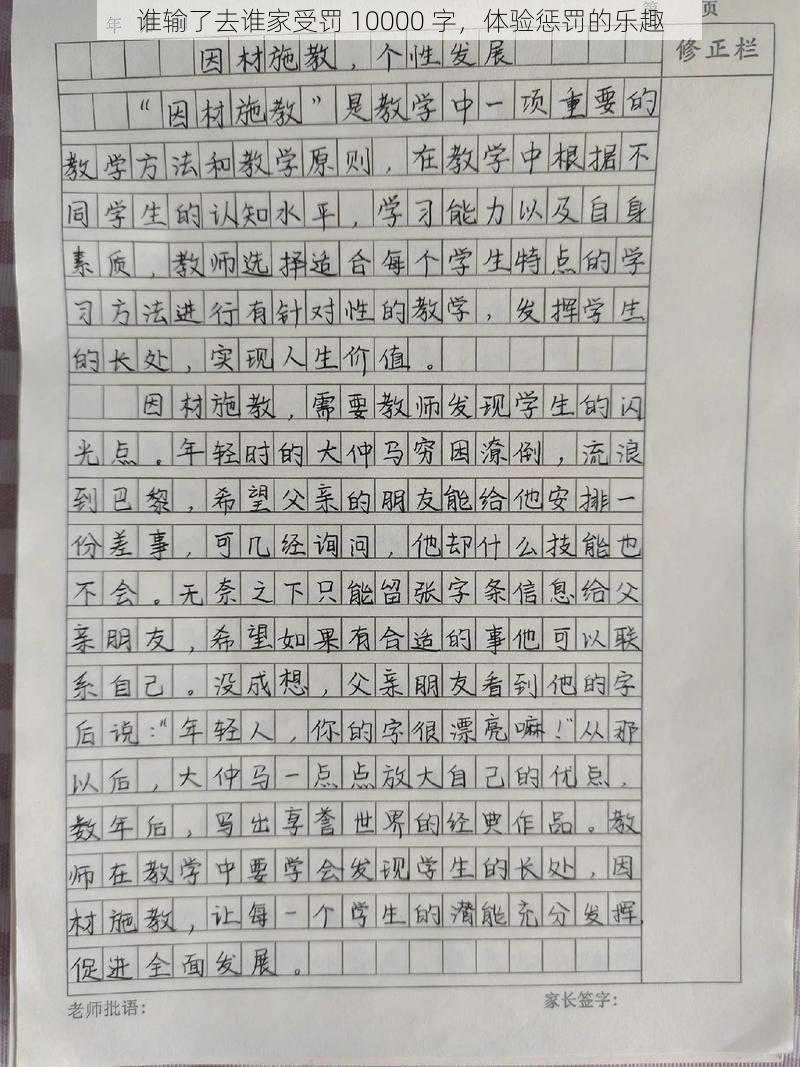 谁输了去谁家受罚 10000 字，体验惩罚的乐趣
年
第 页
因材施教，个性发展
修正栏
“因材施教”是教学中一项重要的
教学方法和教学原则，在教学中根据不
同学生的认知水平，学习能力以及自身
素质，教师选择适合每个学生特点的学
习方法进行有针对性的教学，发挥学生
的长处，实现人生价值。
因材施教，需要教师发现学生的闪
光点。年轻时的大仲马穷困潦倒，流浪
到巴黎，希望父亲的朋友能给他安排一
份差事，可几经询问，他却什么技能也
不会。无奈之下只能留张字条信息给父
亲朋友，希望如果有合适的事他可以联
系自己。没成想，父亲朋友看到他的字
后说：“年轻人，你的字很漂亮嘛！”从那
以后，大仲马一点点放大自己的优点，
数年后，写出享誉世界的经典作品。教
师在教学中要学会发现学生的长处，因
材施教，让每一个学生的潜能充分发挥，
促进全面发展。
老师批语：
家长签字：